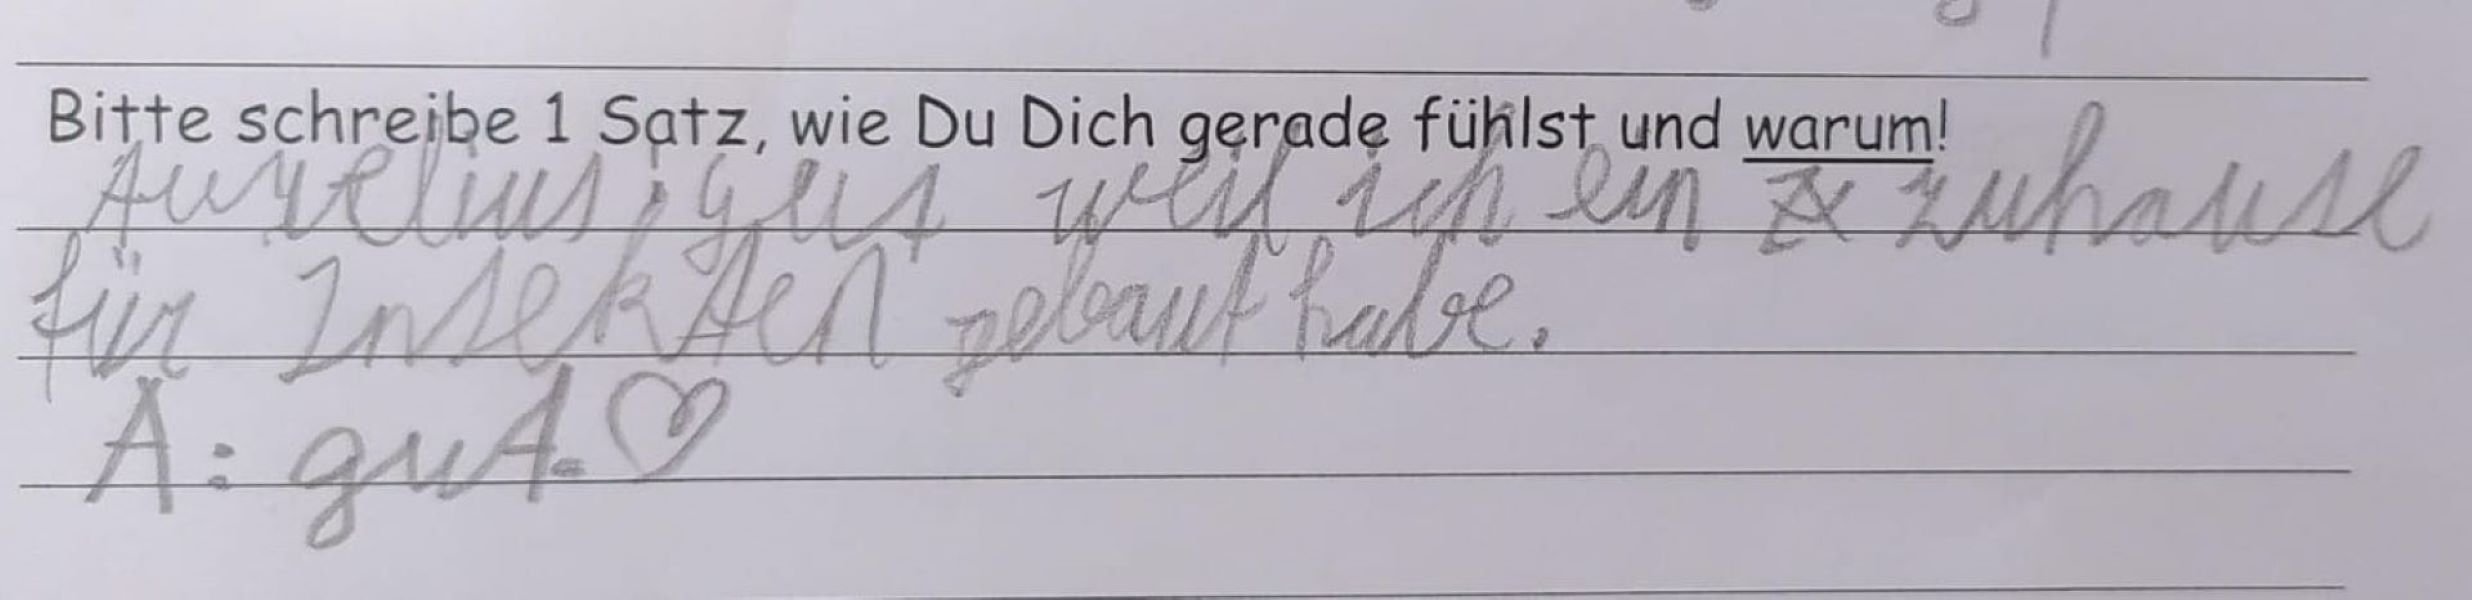 Bitte schreibe 1 Satz, wie Du Dich gerade fühlst und warum!
Aurelius: gut weil ich ein zuhause
für Insekten gebaut habe.
A: gut. ♡